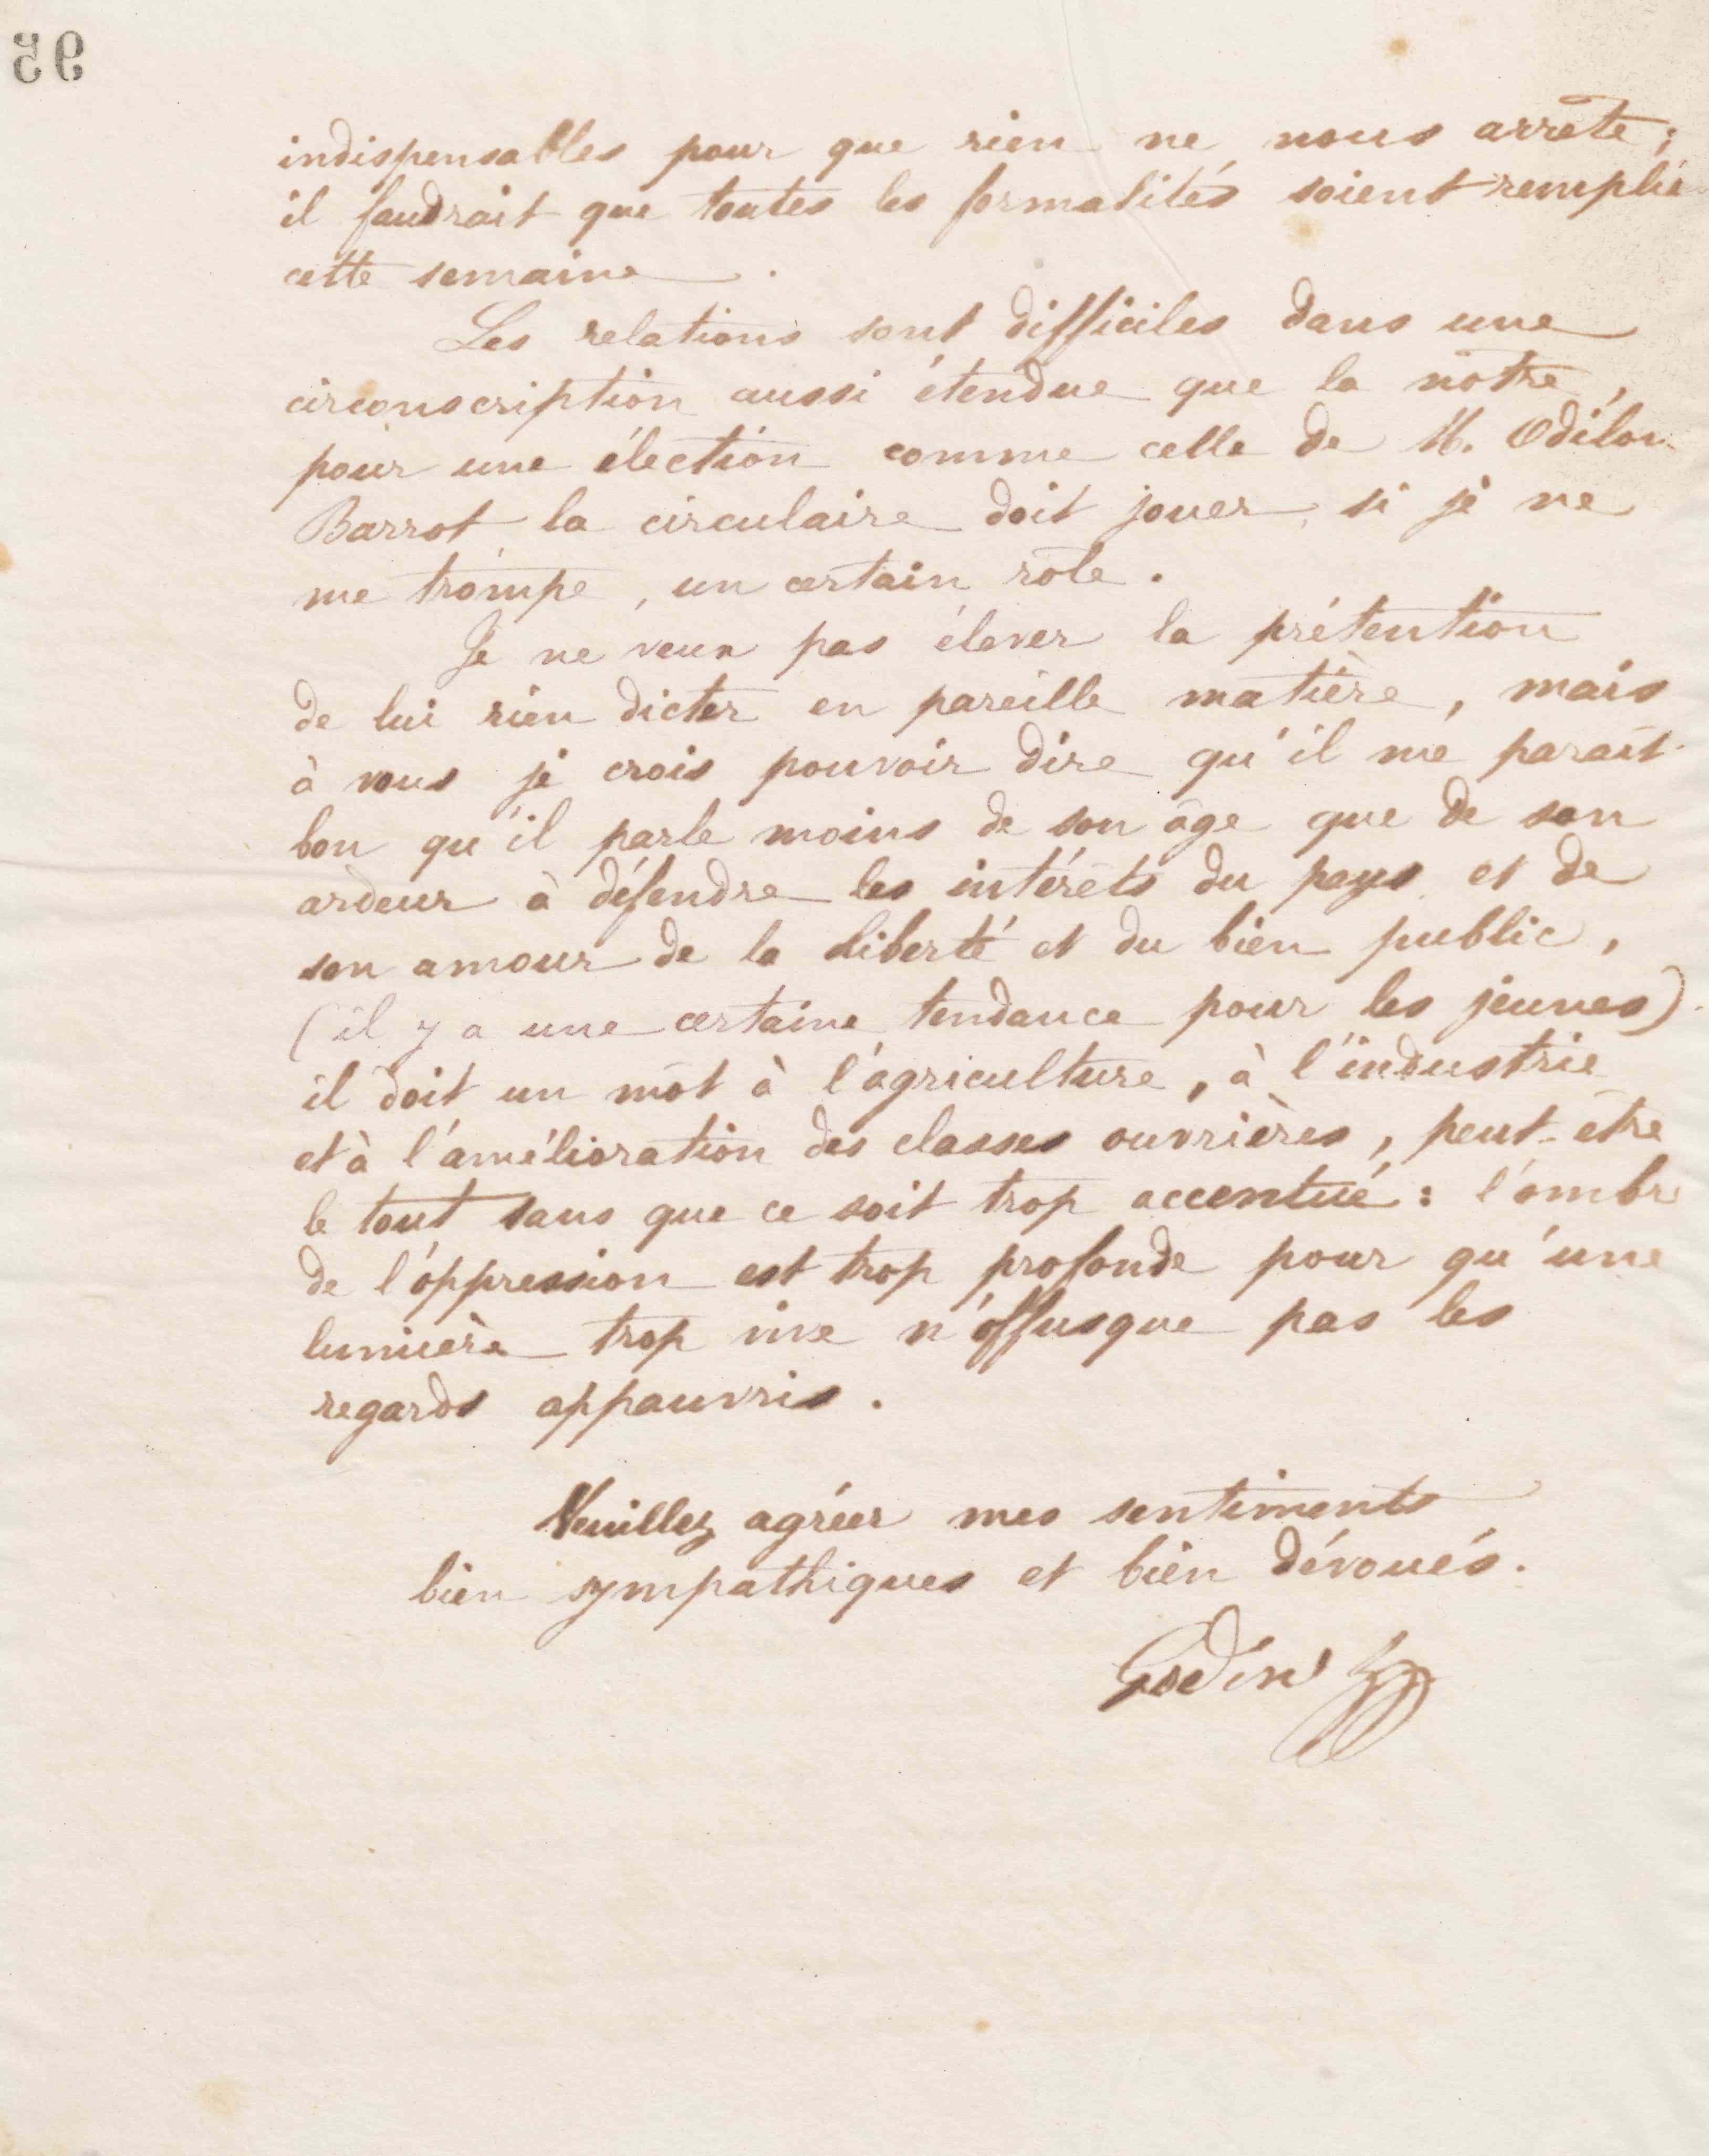 95
indispensables pour que rien ne nous arrête ;
il faudrait que toutes les formalités soient remplie
cette semaine .
Les relations sont difficiles dans une
circonscription aussi étendue que la nôtre ,
pour une élection comme celle de M. Odilon
Barrot la circulaire doit jouer, si je ne
me trompe , un certain rôle .
Je ne veux pas élever la prétention
de lui rien dicter en pareille matière , mais
à vous je crois pouvoir dire qu'il me parait
bon qu'il parle moins de son âge que de son
ardeur à défendre les intérêts du pays et de
son amour de la liberté et du bien public ,
(il y a une certaine tendance pour les jeunes)
il doit un mot à l'agriculture , à l'industrie
et à l'amélioration des classes ouvrières , peut-être
le tout sans que ce soit trop accentué : l'ombre
de l'oppression est trop profonde pour qu'une
lumière trop vive n'offusque pas les
regards appauvris .
Veuillez agréer mes sentiments
bien sympathiques et bien dévoués .
Godin